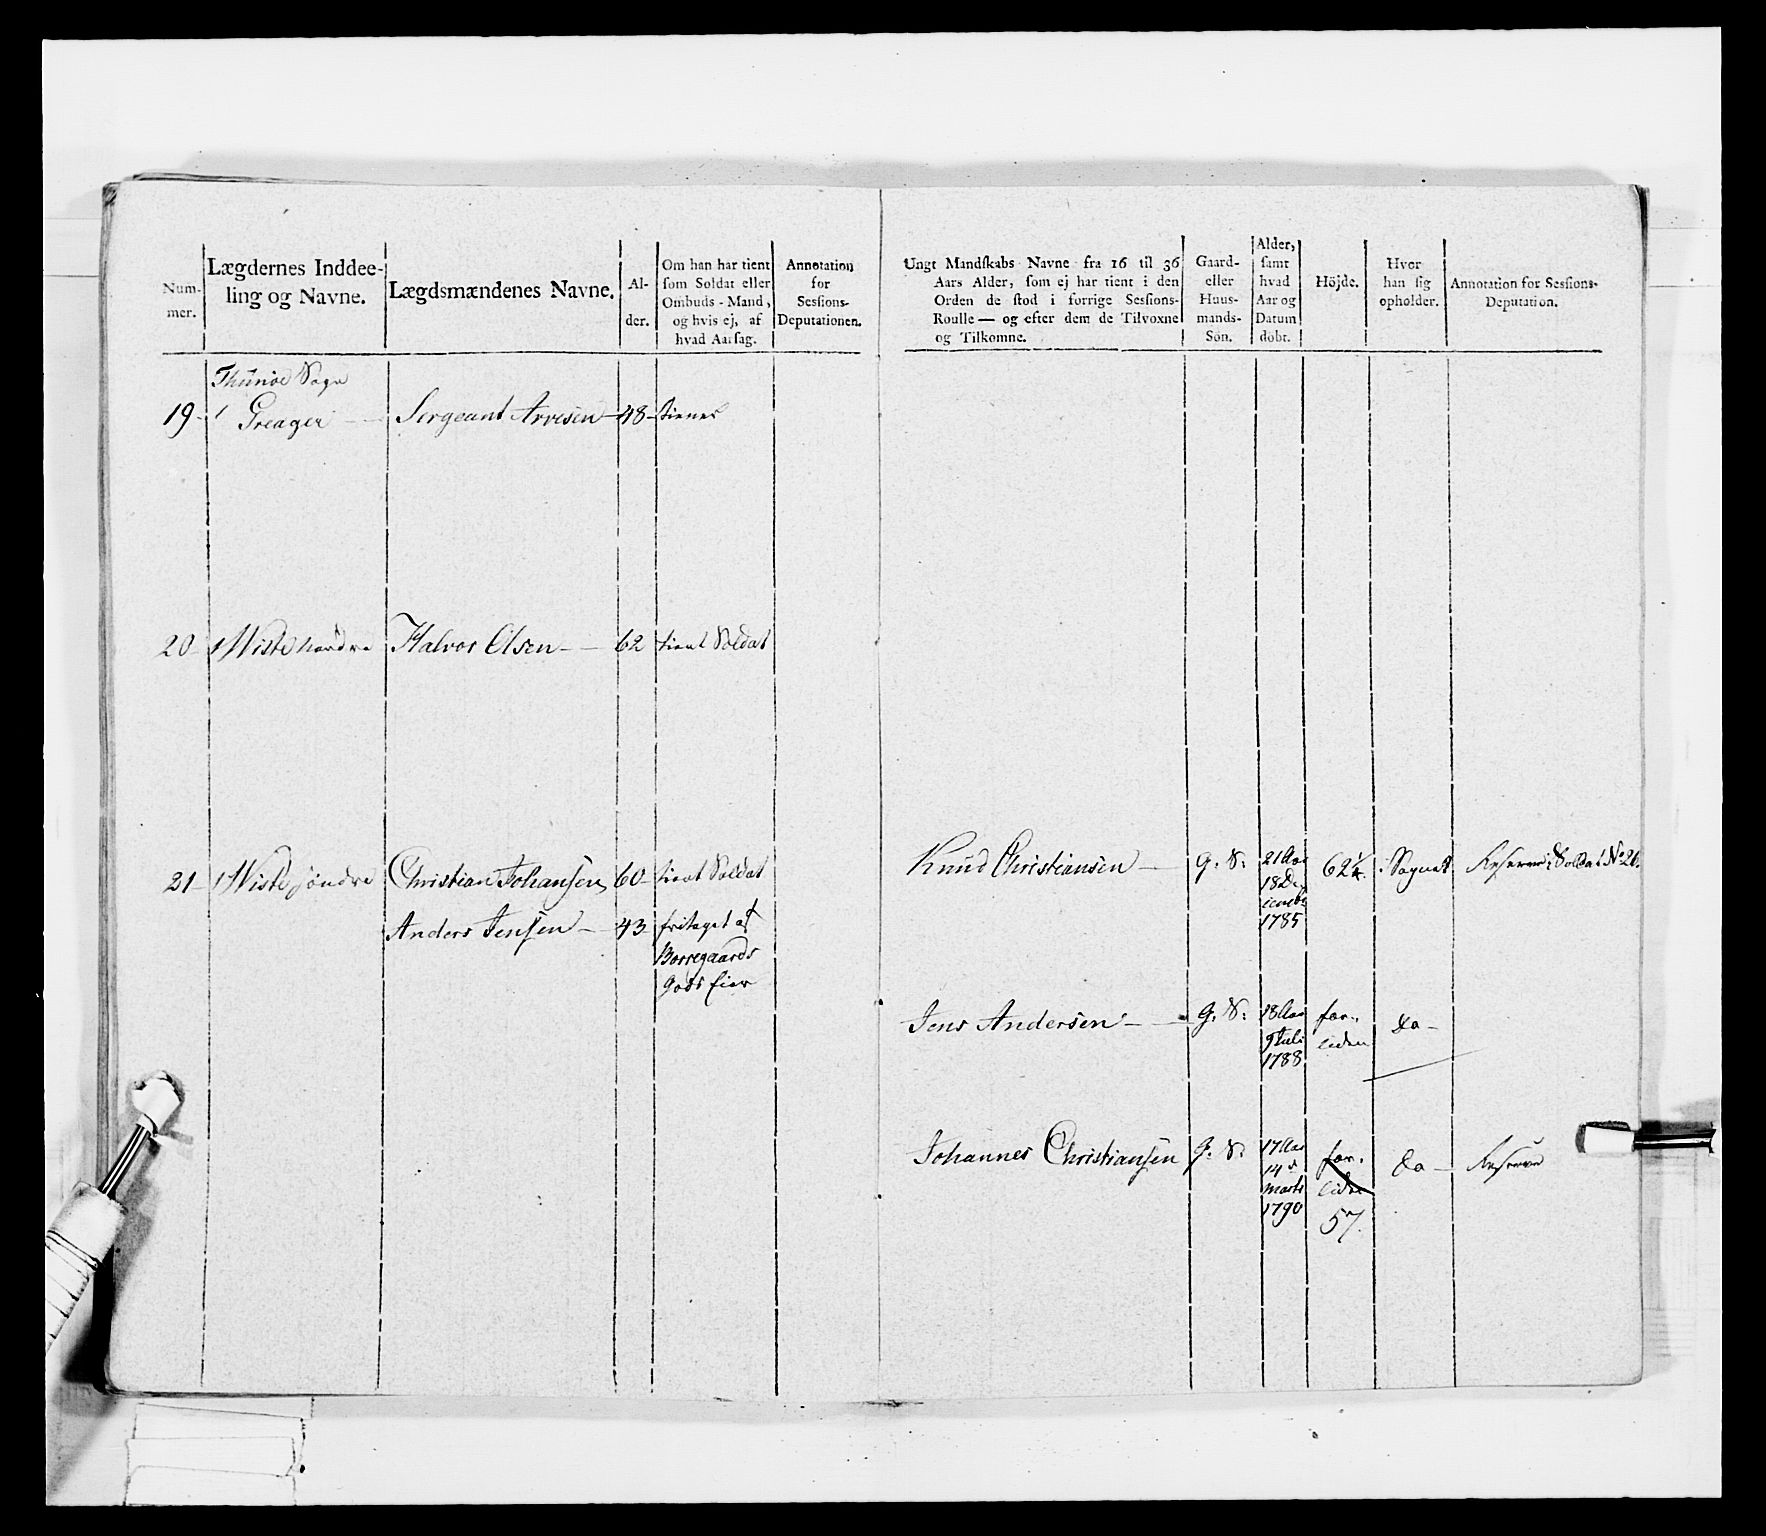 Num-
mer.
Lægdernes Inddee-
ling og Navne.
Lægdsmændenes Navne.
Al-
der.
Om han har tient
som Soldat eller
Ombuds-Mand,
og hvis ej, af
hvad Aarsag.
Annotation
for
Sessions-
Deputationen.
Ungt Mandskabs Navne fra 16 til 36
Aars Alder, som ej har tient i den
Orden de stod i forrige Sessions-
Roulle — og efter dem de Tilvoxne
og Tilkomne.
Gaard-
eller
Huus-
mands-
Søn.
Alder,
samt
hvad
Aar og
Datum
døbt.
Höjde.
Hvor
han sig
opholder.
Annotation for Sessions-
Deputation.
Thunøe Sogn
19 - 1 Greager - - Sergeant Arvesen - 48 - tiener
20 - 1 Wiste nordre Halvor Olsen - - 62 tient Soldat
21 - 1 Wiste søndre Christian Johansen 60 - tient Soldat
Anders Jensen - 43 fritaget af
Borregaards
Gods Eier
Knud Christiansen - G: S: 21 Aar
18 De-
cembr
1785
62 1/4. i Sognet Reserve Soldat No 26.
Jens Andersen - - G: S: 18 Aar
9 Juli
1788
for-
liden
do -
Johannes Christiansen G: S: 17 Aar
14 d
Marts
1790
for-
liden
57.
do - Reserve